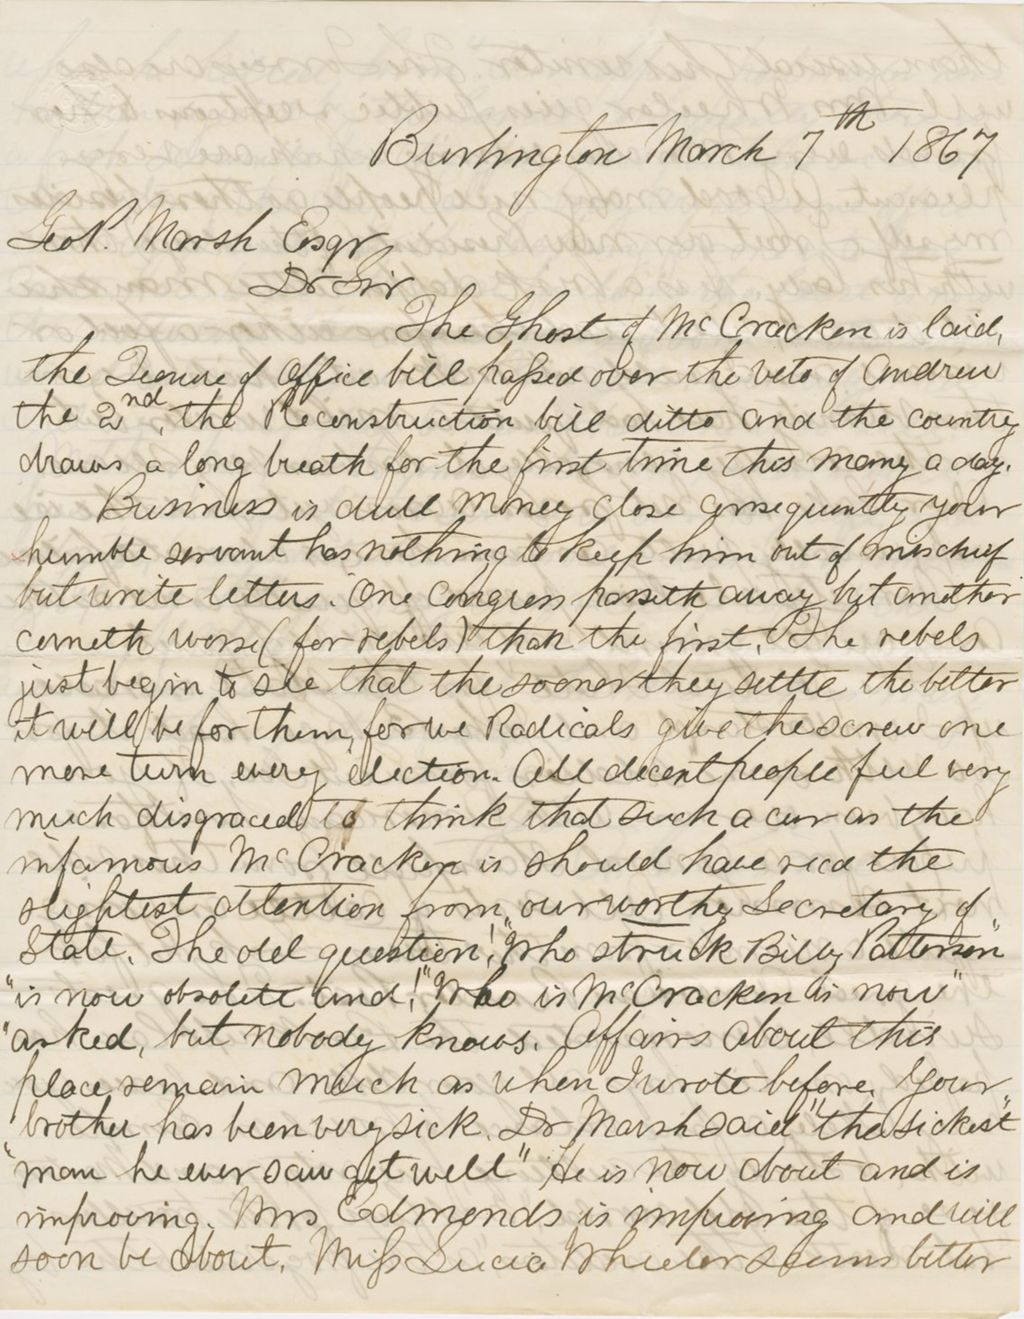 Burlington March 7th 1867
Geo P. Marsh Esqr
Dr Sir
The Ghost of McCracken is laid,
the Tenure of Office bill passed over the veto of Andrew
the 2nd, the Reconstruction bill ditto and the country
draws a long breath for the first time this many a day.
Business is dull money close consequently your
humble servant has nothing to keep him out of mischief
but write letters. One Congress passeth away but another
cometh worse (for rebels) than the first. The rebels
just begin to see that the sooner they settle the better
it will be for them, for we Radicals give the screw one
more turn every election. All decent people feel very
much disgraced to think that such a cur as the
infamous McCracken is should have recd the
slightest attention from our worthy Secretary of
State. The old question! "Who struck Billy Patterson"
"is now obsolete and! "Who is McCracken is now"
"asked, but nobody knows. Affairs about this
place remain much as when I wrote before. Your
brother has been very sick. Dr Marsh said "the sickest"
"man he ever saw get well" He is now about and is
improving. Mrs Edmonds is improving and will
soon be about. Miss Lucia Wheeler seems better